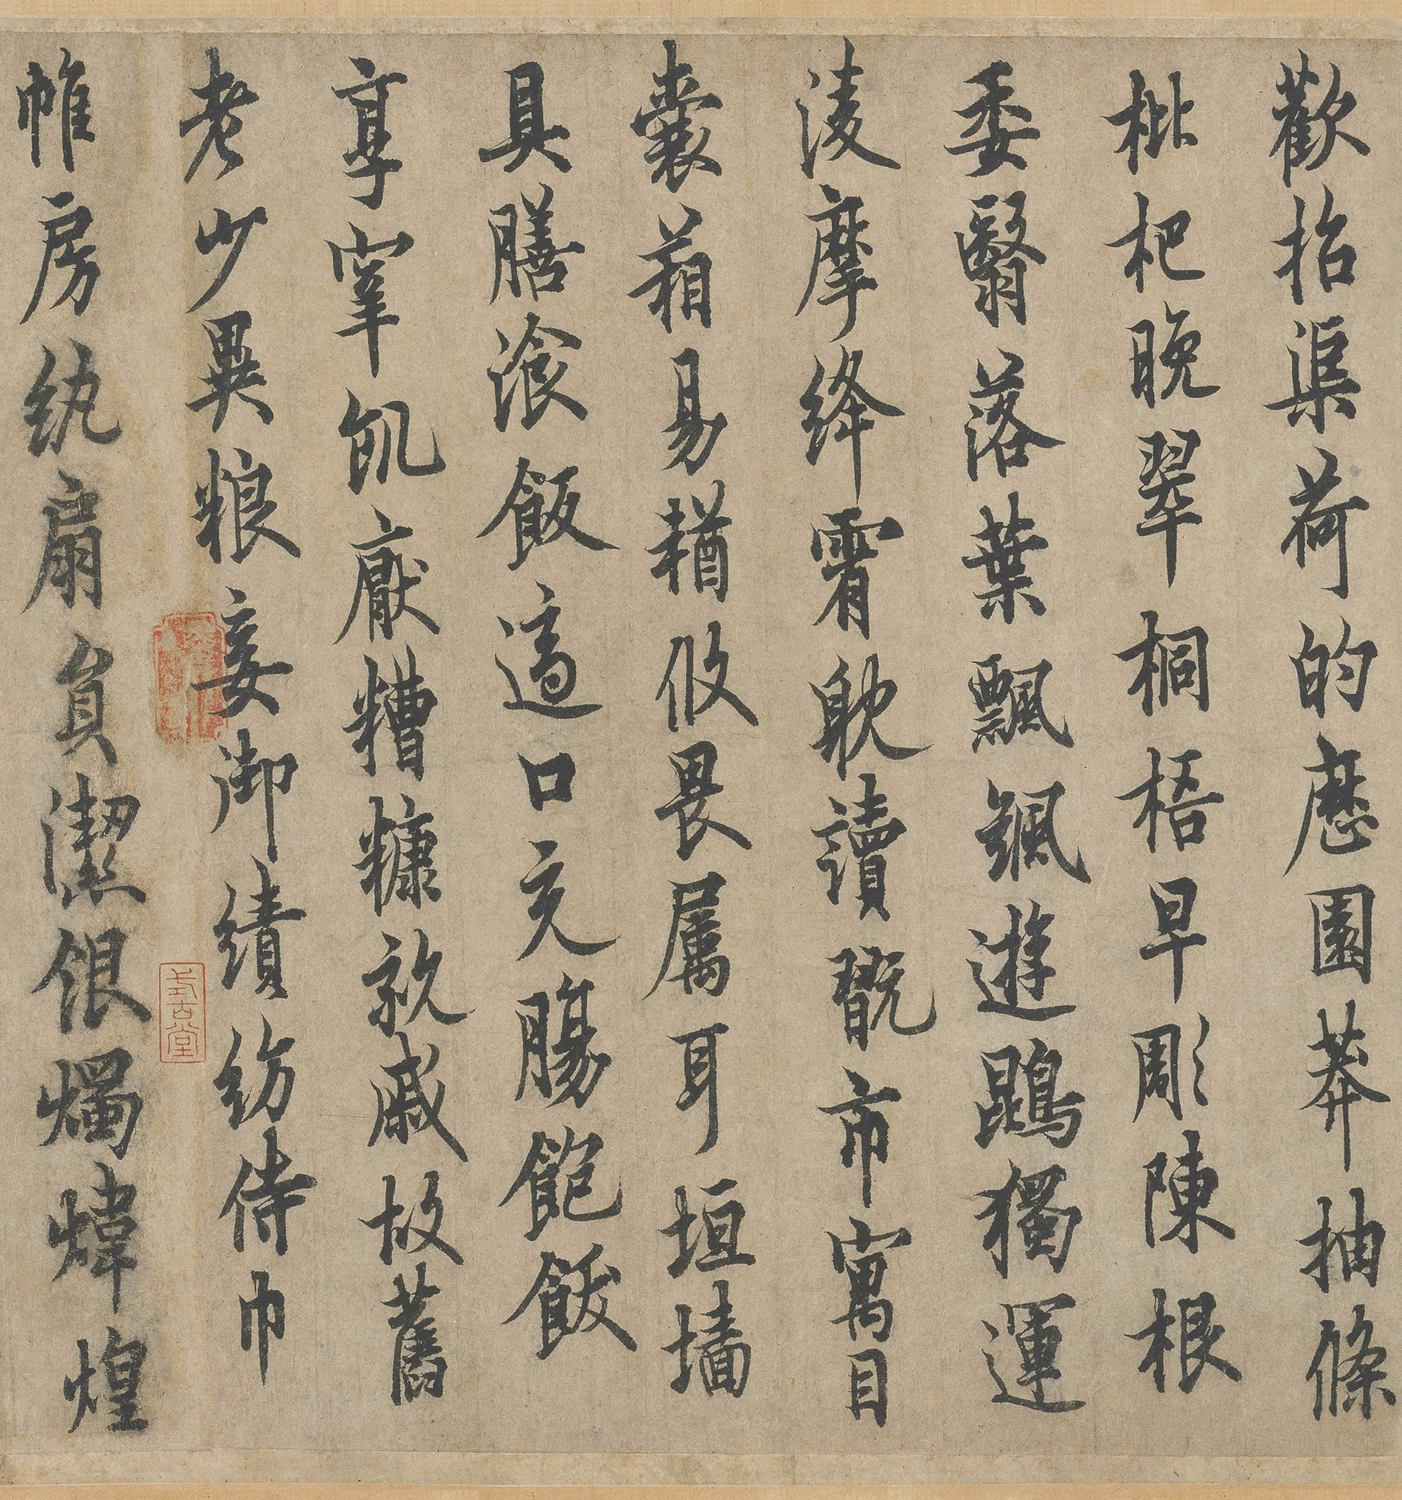 歡招渠荷的歷園莽抽條
枇杷晚翠桐梧早彫陳根
委翳落葉飄颻遊鵾獨運
淩摩絳霄躭讀翫市寓目
囊葙易輶攸畏屬耳垣墻
具膳湌飯適口充腸飽飫
享宰飢厭糟糠親戚故舊
老少異粮妾御績紡侍巾
帷房紈扇員潔銀燭煒煌
式古堂